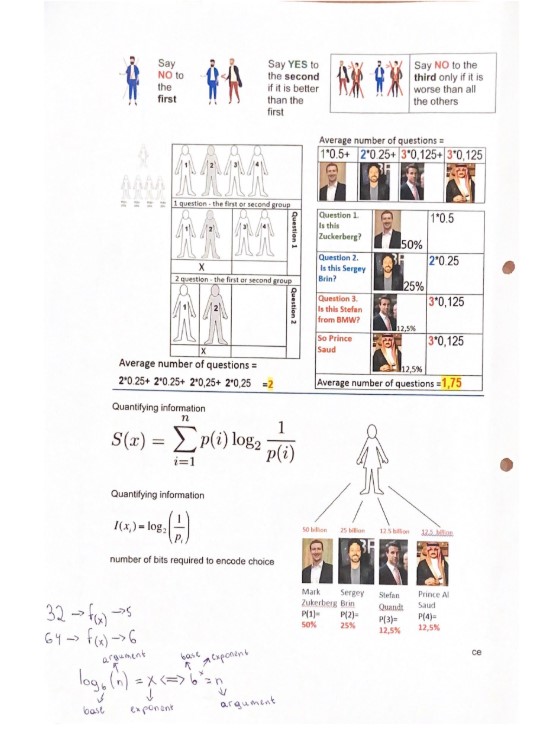 Say
NO to
the
first
Say YES to
the second
if it is better
than the
first
Say NO to the
third only if it is
worse than all
the others
Average number of questions =
1*0.5+ 2*0.25+ 3*0,125+ 3*0,125
1 2 3 4
1 question - the first or second group
1 2 3 4
Question 1
X
2 question - the first or second group
1 2
Question 2
X
Average number of questions =
2*0.25+ 2*0.25+ 2*0,25+ 2*0,25 =2
Question 1.
Is this
Zuckerberg?
50%
1*0.5
Question 2.
Is this Sergey
Brin?
25%
2*0.25
Question 3.
Is this Stefan
from BMW?
12,5%
3*0,125
So Prince
Saud
12,5%
3*0,125
Average number of questions =1,75
Quantifying information
S(x) = ∑ⁿᵢ₌₁ p(i) log₂ 1/p(i)
Quantifying information
I(xᵢ) = log₂(1/pᵢ)
number of bits required to encode choice
50 billion 25 billion 12.5 billion 12.5 billion
Mark
Zukerberg
P(1)=
50%
Sergey
Brin
P(2)=
25%
Stefan
Quandt
P(3)=
12,5%
Prince Al
Saud
P(4)=
12,5%
ce
32 → f(x) → 5
64 → f(x) → 6
argument base exponent
log_b(n) = x <=> b^x = n
base exponent argument